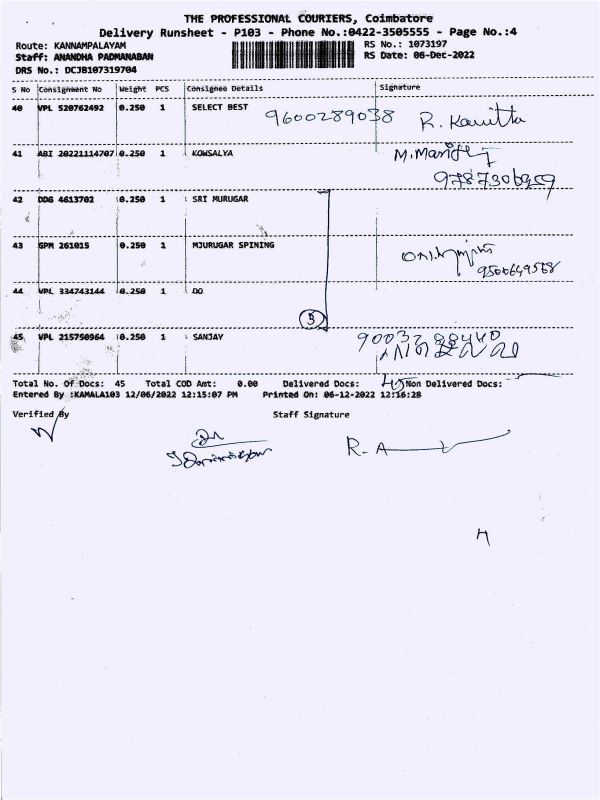 THE PROFESSIONAL COURIERS, Coimbatore
Delivery Runsheet - P103 - Phone No.:0422-3505555 - Page No.:4
Route: KANNAMPALAYAM RS No.: 1073197
Staff: ANANDHA PADMANABAN RS Date: 06-Dec-2022
DRS No.: DCJB107319704
S No Consignment No Weight PCS Consignee Details Signature
40 VPL 520762492 0.250 1 SELECT BEST 9600289038 R. Kavitta
41 ABI 20221114707 0.250 1 KOWSALYA
42 DDG 4613702 0.250 1 SRI MURUGAR
43 GPM 261015 0.250 1 MJURUGAR SPINING
9500649568
44 VPL 334743144 0.250 1 DO
3
45 VPL 215750964 0.250 1 SANJAY
Total No. Of Docs: 45 Total COD Amt: 0.00 Delivered Docs: 45 Non Delivered Docs:
Entered By :KAMALA103 12/06/2022 12:15:07 PM Printed On: 06-12-2022 12:16:28
Verified By Staff Signature
R. A